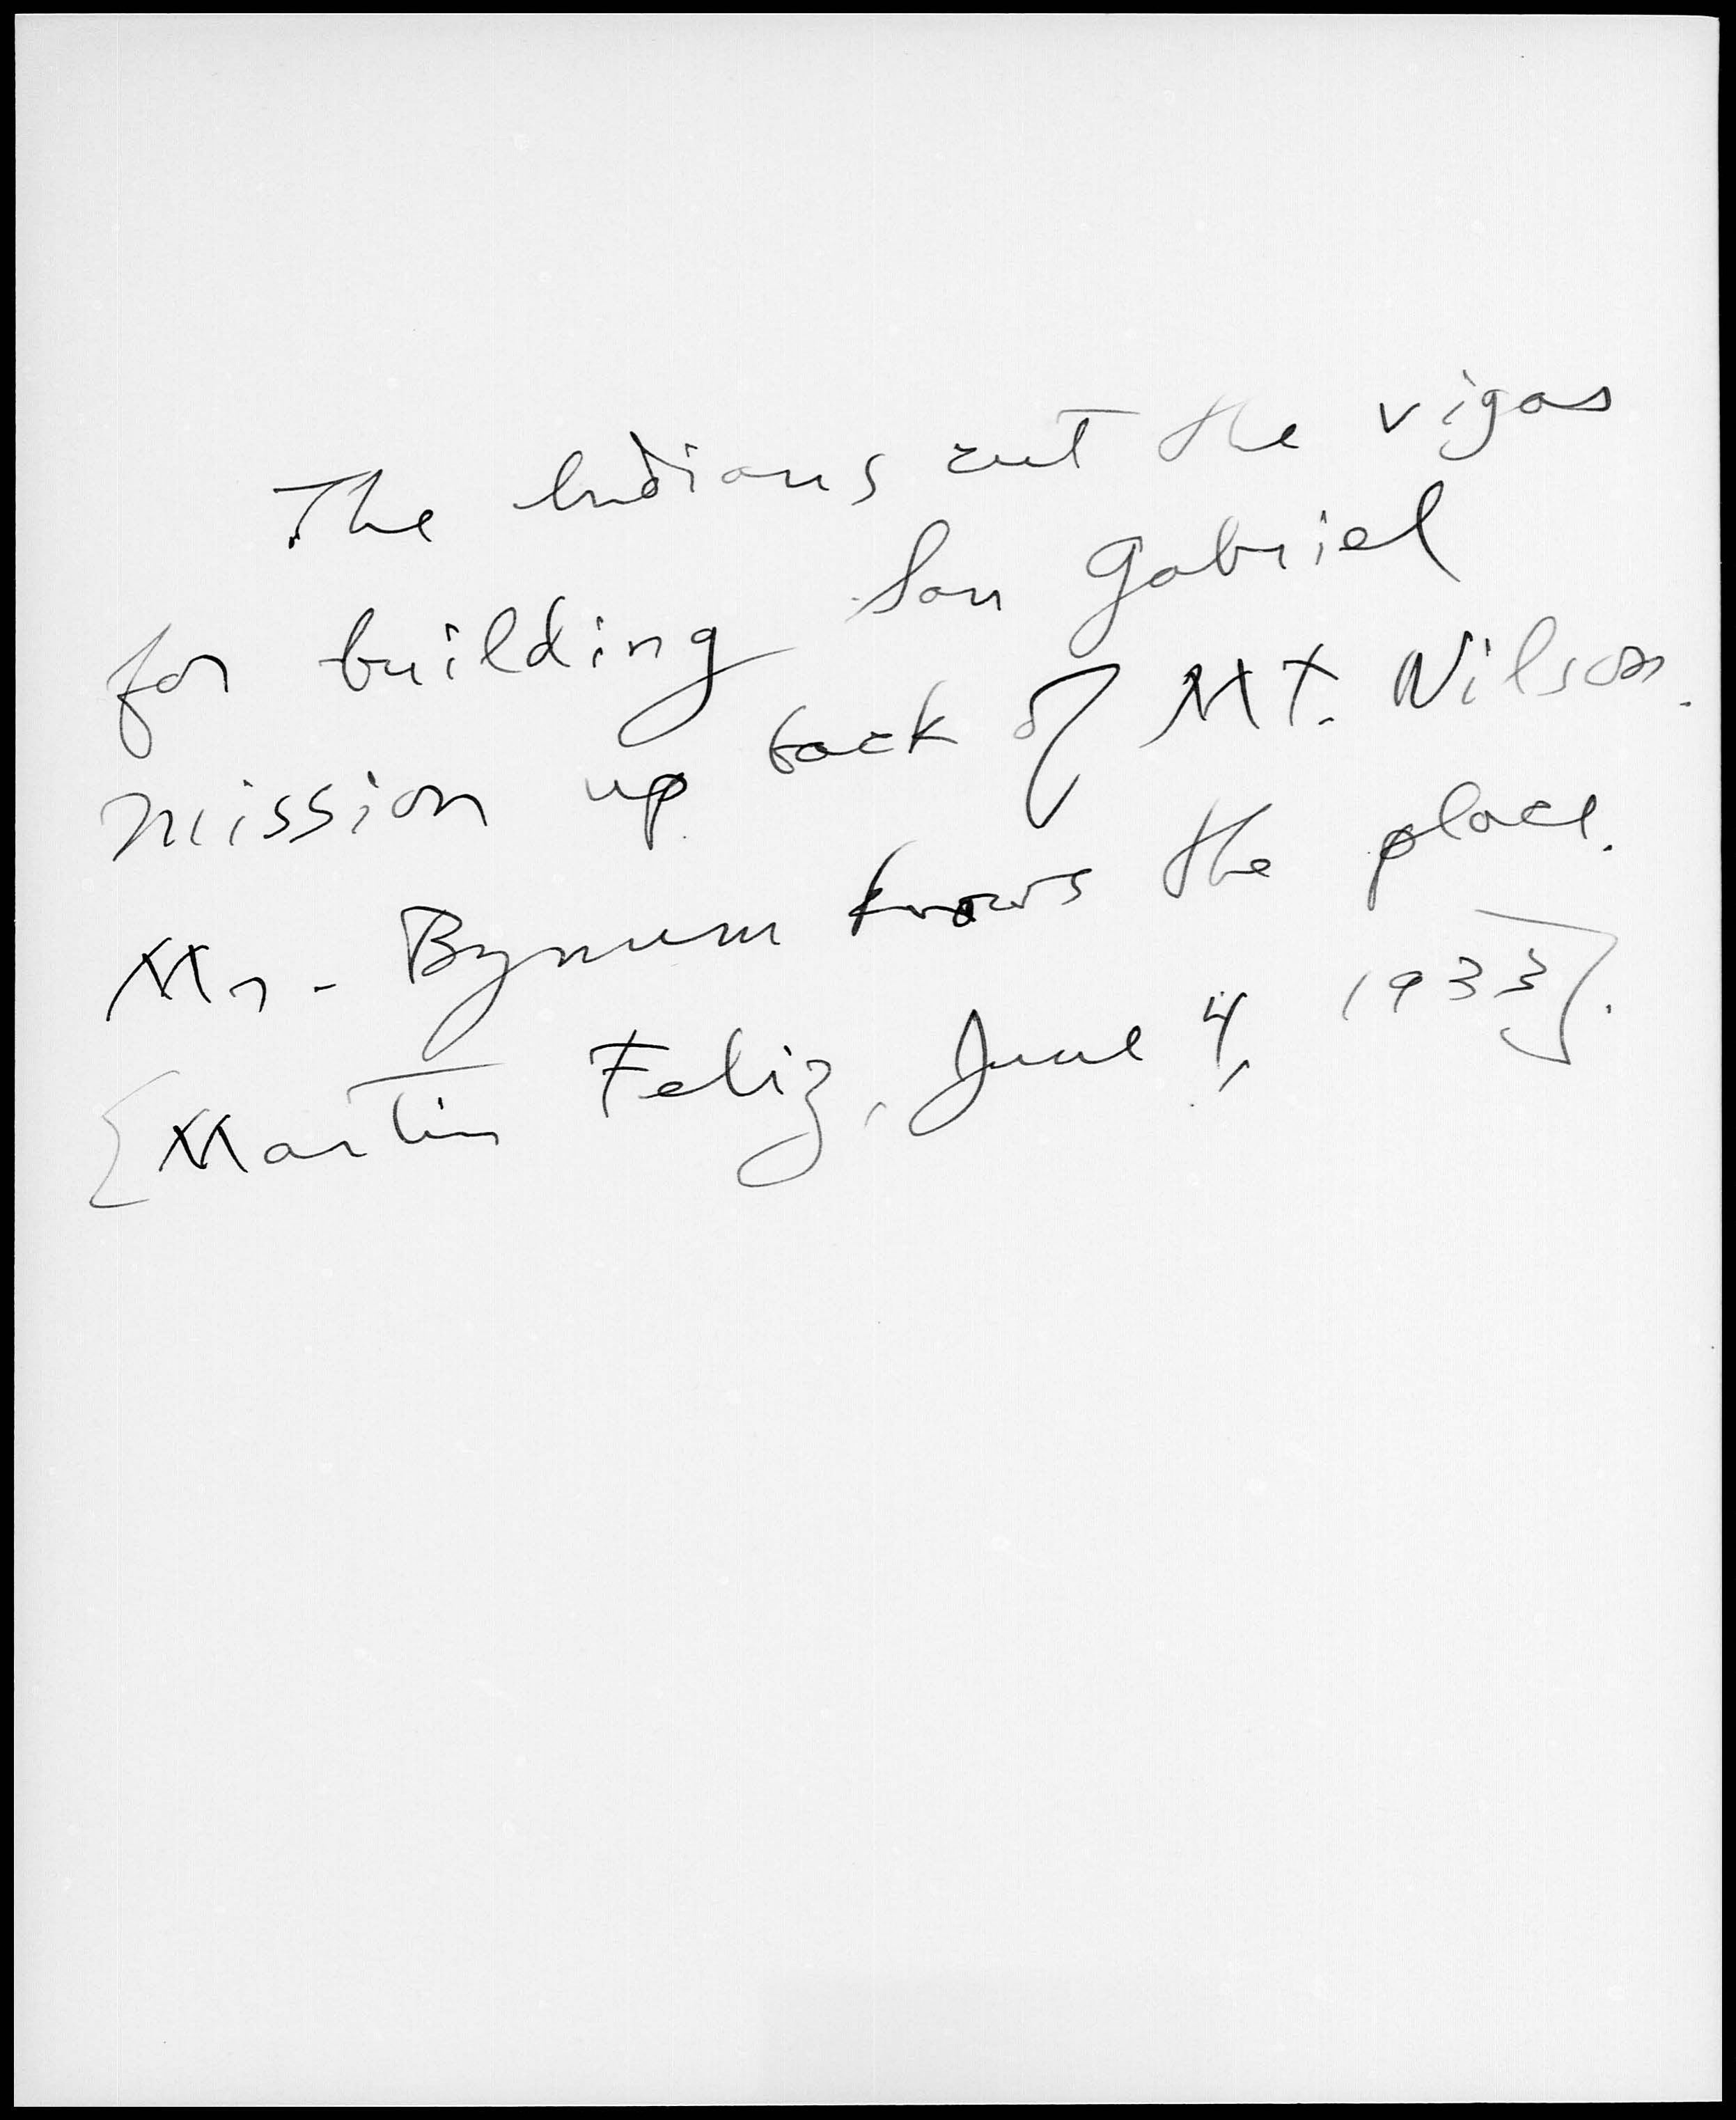 The Indians cut the vigas
for building San Gabriel
mission up back of Mt. Wilson.
Mr. Bynum knows the place.
[Martin Feliz, June 4, 1933].